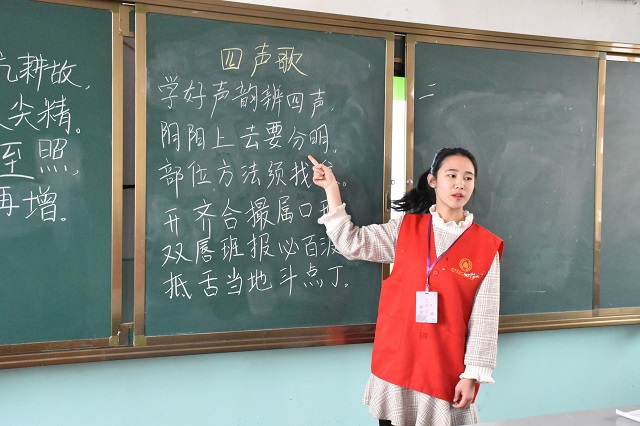 耕故，
尖精。
至照，
再增。
四声歌
学好声韵辨四声，
阴阳上去要分明。
部位方法须找
开齐合撮属口
双唇班报必百波
抵舌当地斗点丁。
二